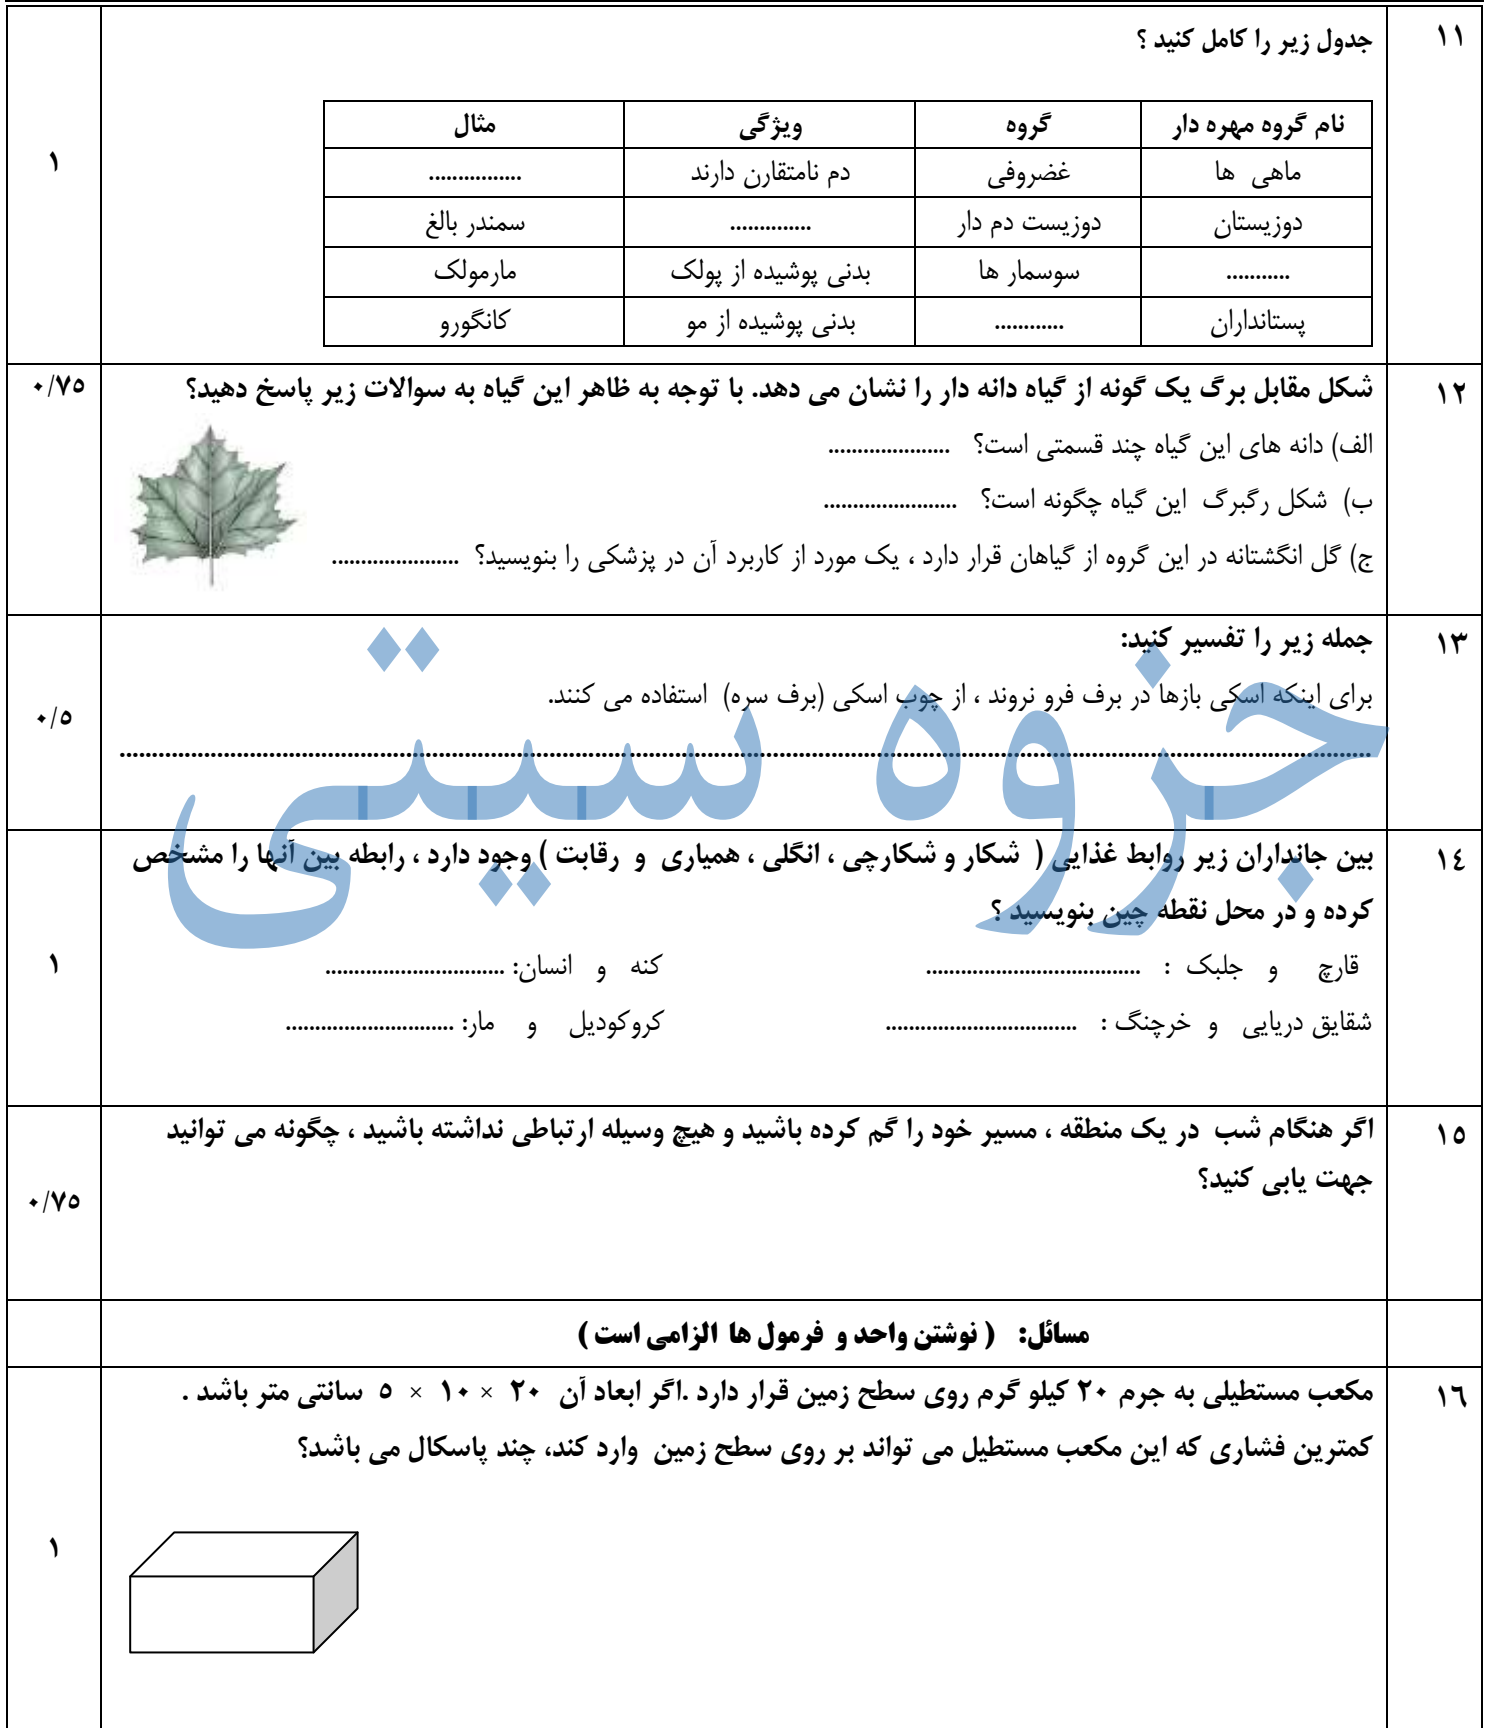 ۱۱
جدول زیر را کامل کنید ؟
۱
نام گروه مهره دار گروه ویژگی مثال
ماهی ها غضروفی دم نامتقارن دارند ................
دوزیستان دوزیست دم دار .............. سمندر بالغ
........... سوسمار ها بدنی پوشیده از پولک مارمولک
پستانداران ............ بدنی پوشیده از مو کانگورو
۱۲
شکل مقابل برگ یک گونه از گیاه دانه دار را نشان می دهد. با توجه به ظاهر این گیاه به سوالات زیر پاسخ دهید؟
۰/۷۵
الف) دانه های این گیاه چند قسمتی است؟ .....................
ب) شکل رگبرگ این گیاه چگونه است؟ .......................
ج) گل انگشتانه در این گروه از گیاهان قرار دارد ، یک مورد از کاربرد آن در پزشکی را بنویسید؟ ......................
۱۳
جمله زیر را تفسیر کنید:
برای اینکه اسکی بازها در برف فرو نروند ، از چوب اسکی (برف سره) استفاده می کنند.
۰/۵
................................................................................................................................................
جزوه سیتی
۱٤
بین جانداران زیر روابط غذایی ( شکار و شکارچی ، انگلی ، همیاری و رقابت ) وجود دارد ، رابطه بین آنها را مشخص
کرده و در محل نقطه چین بنویسید ؟
۱
قارچ و جلبک : ..................................... کنه و انسان: ...............................
شقایق دریایی و خرچنگ : ................................. کروکودیل و مار: .............................
۱٥
اگر هنگام شب در یک منطقه ، مسیر خود را گم کرده باشید و هیچ وسیله ارتباطی نداشته باشید ، چگونه می توانید
جهت یابی کنید؟
۰/۷۵
مسائل: ( نوشتن واحد و فرمول ها الزامی است )
۱٦
مکعب مستطیلی به جرم ۲۰ کیلو گرم روی سطح زمین قرار دارد .اگر ابعاد آن ۲۰ × ۱۰ × ۵ سانتی متر باشد .
کمترین فشاری که این مکعب مستطیل می تواند بر روی سطح زمین وارد کند، چند پاسکال می باشد؟
۱